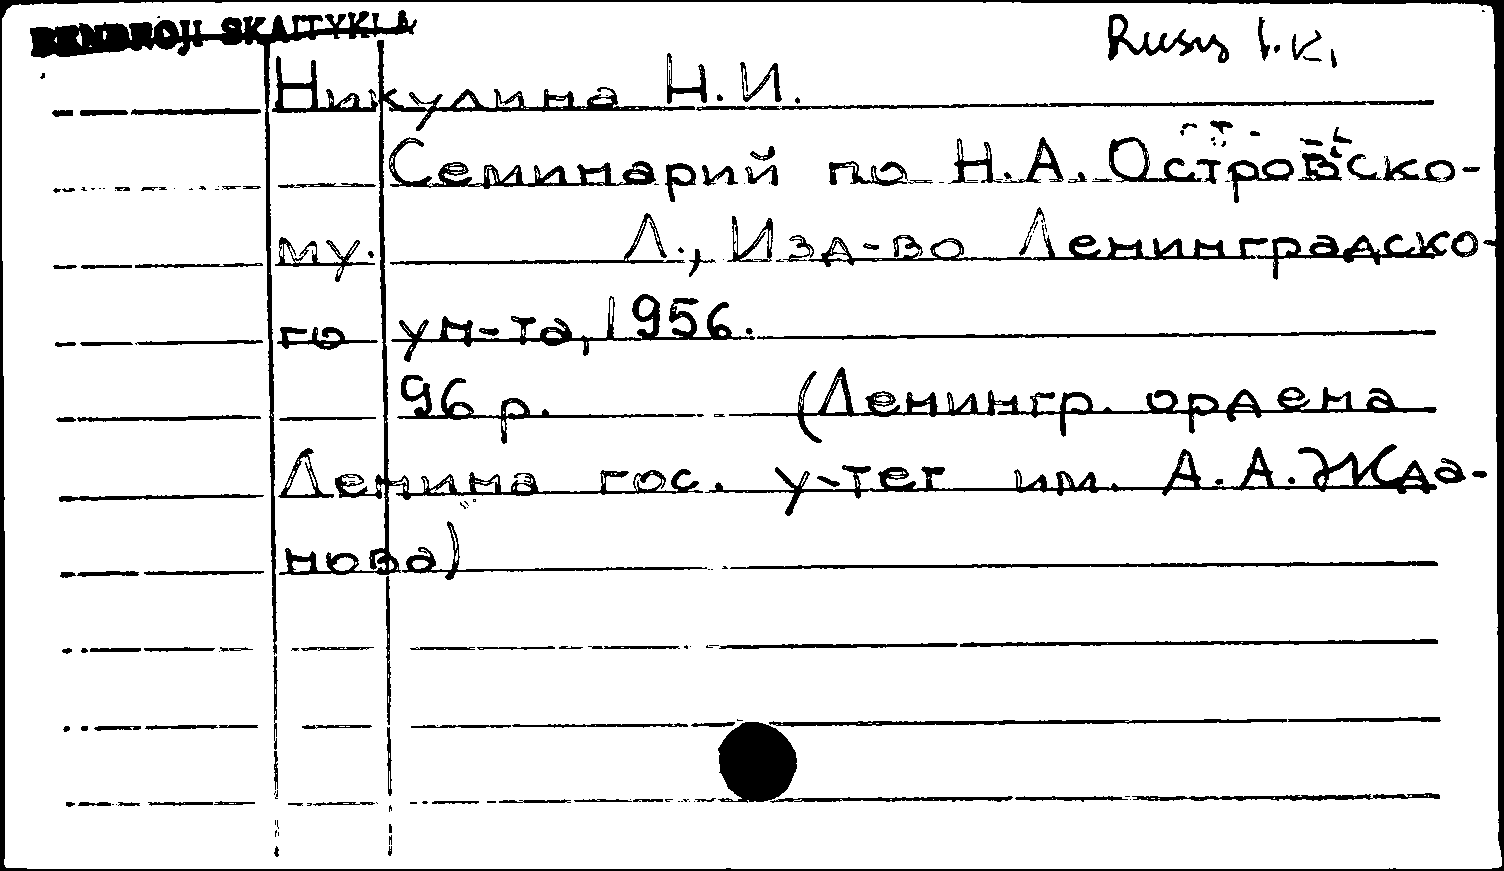 BENDROJI SKAITYKLA
Rusų l.k.
Никулина Н.И.
Семинарий по Н.А. Островско-
му. Л., Изд-во Ленинградско-
го ун-та, 1956.
96 p. (Ленингр. ордена
Ленина гос. у-тет им. А.А.Жда-
нова)